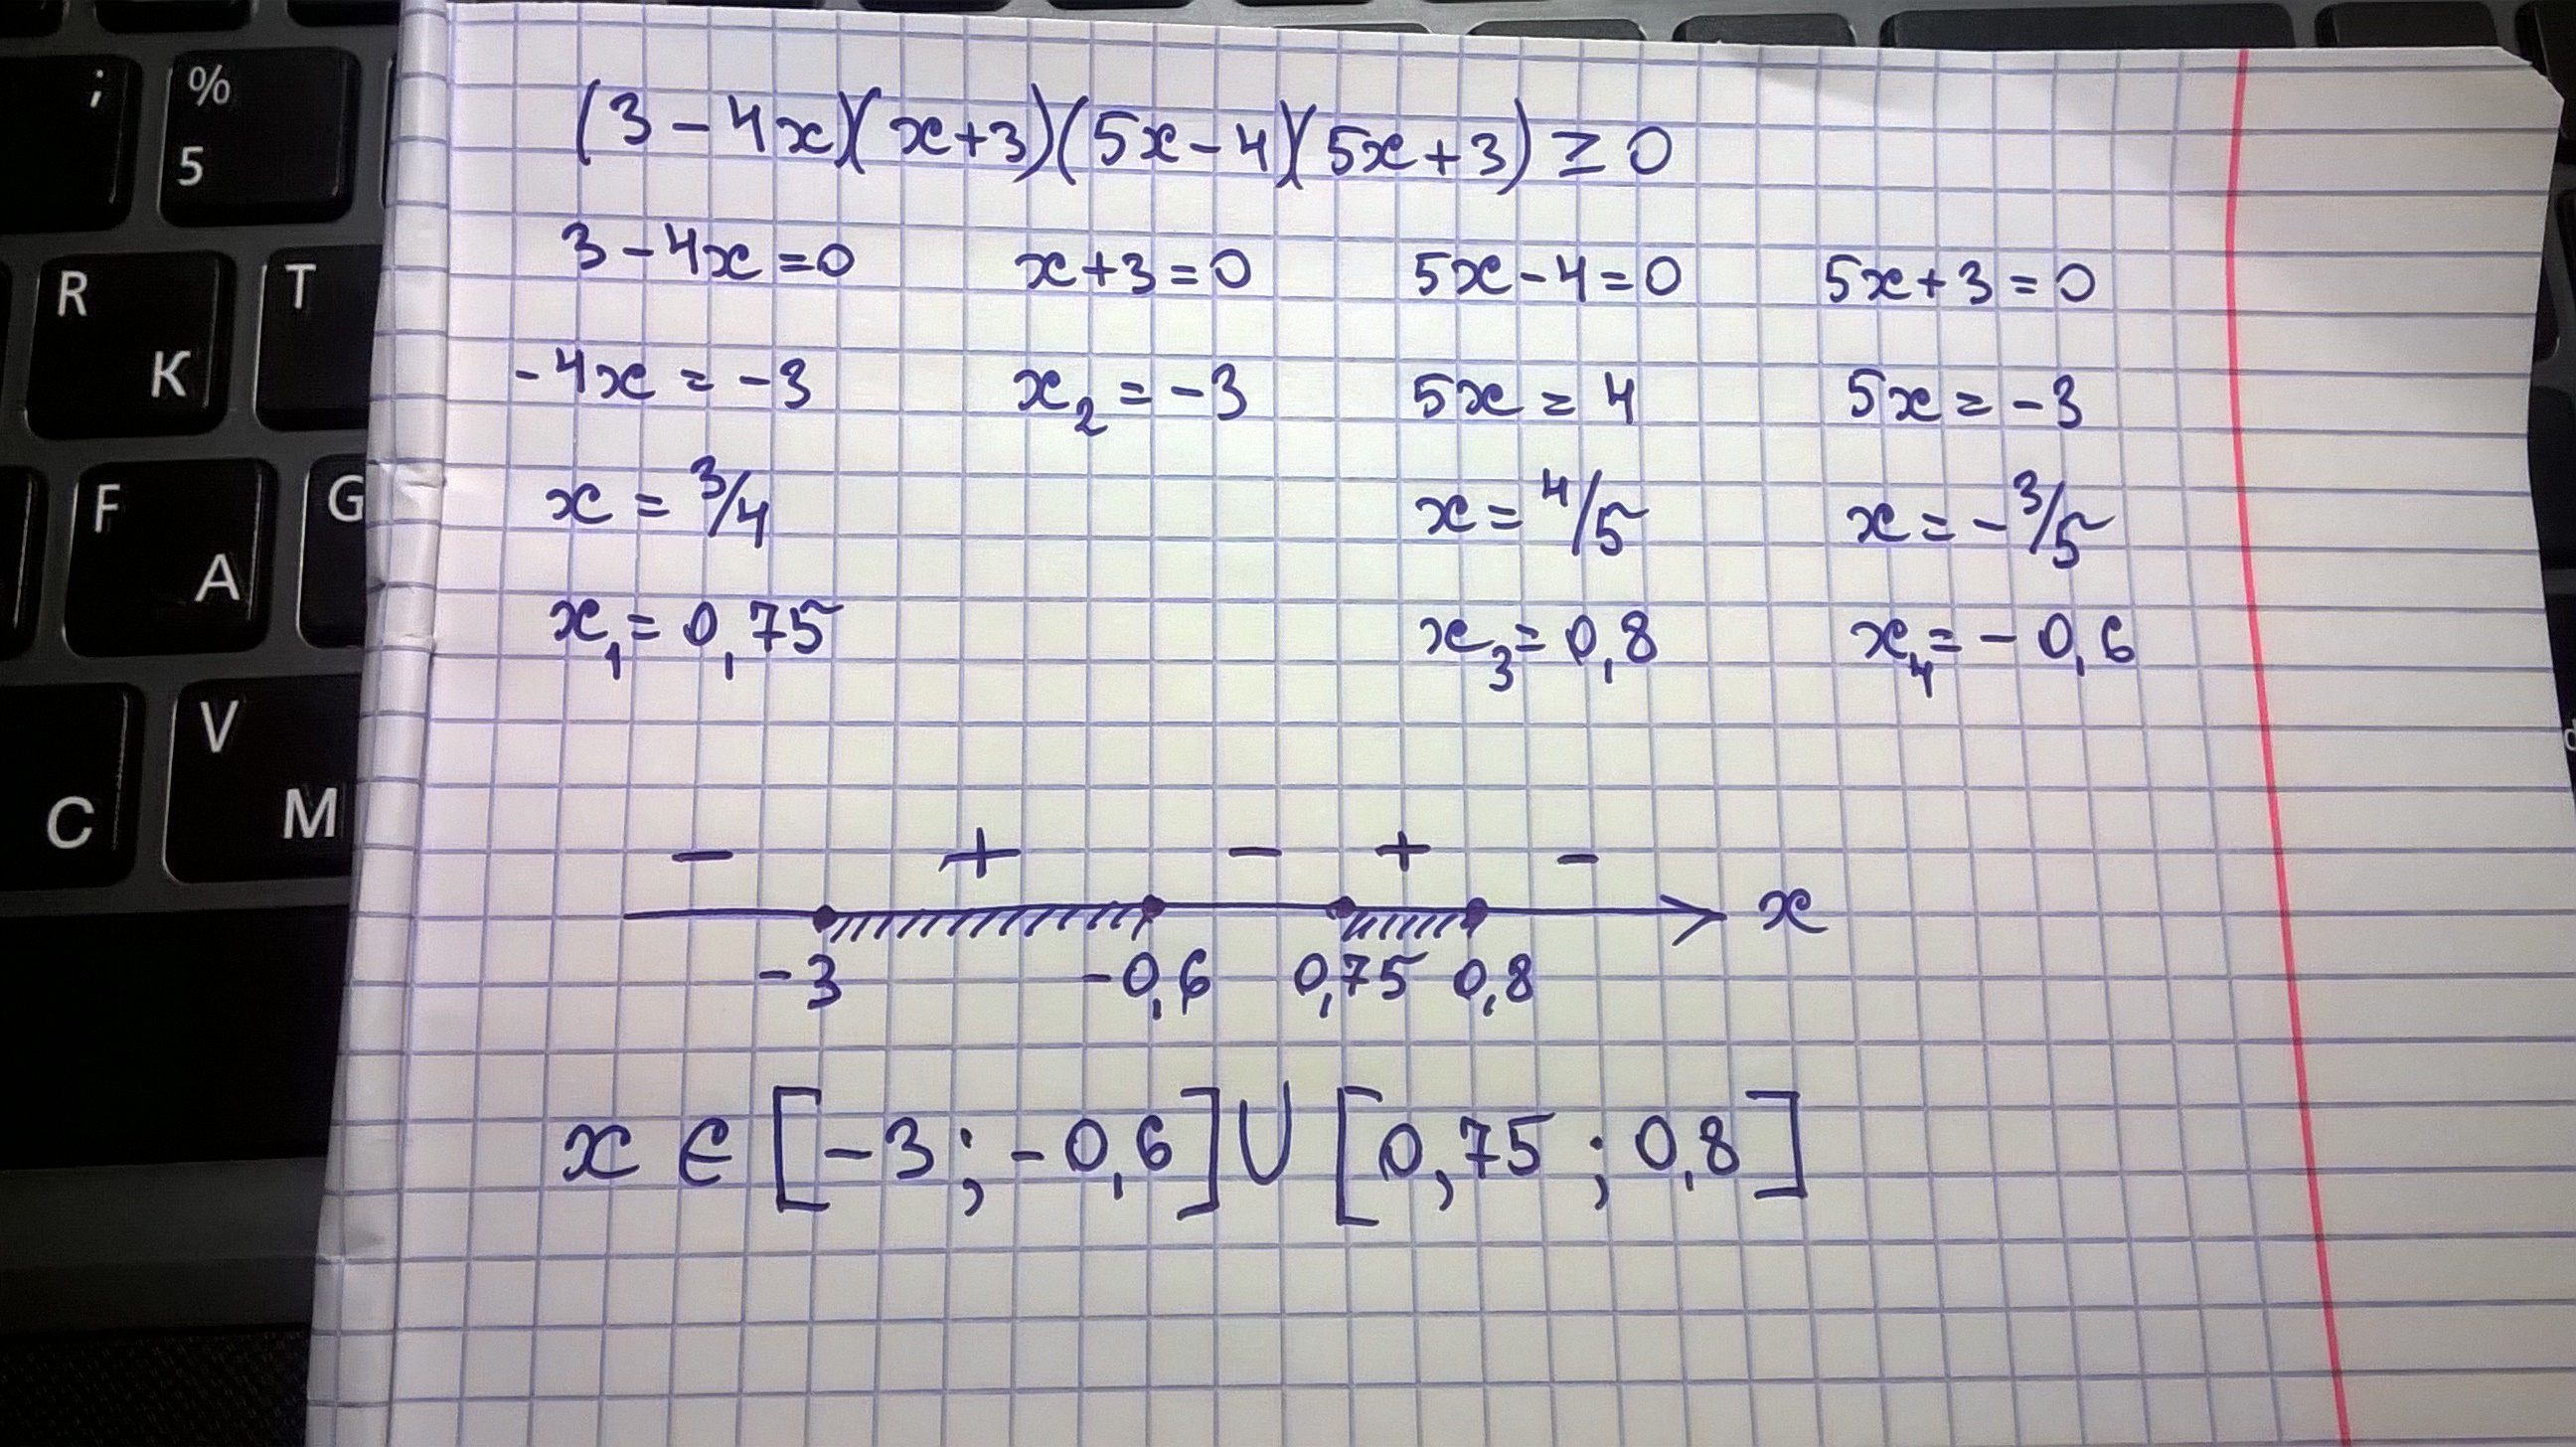 ; % 5
R K T
F A G
C V M
(3-4x)(x+3)(5x-4)(5x+3) ≥ 0
3-4x=0 x+3=0 5x-4=0 5x+3=0
-4x = -3 x₂ = -3 5x = 4 5x = -3
x = 3/4 x = 4/5 x = -3/5
x₁ = 0,75 x₃ = 0,8 x₄ = -0,6
- + - + -
x
-3 -0,6 0,75 0,8
x ∈ [-3; -0,6] ∪ [0,75; 0,8]